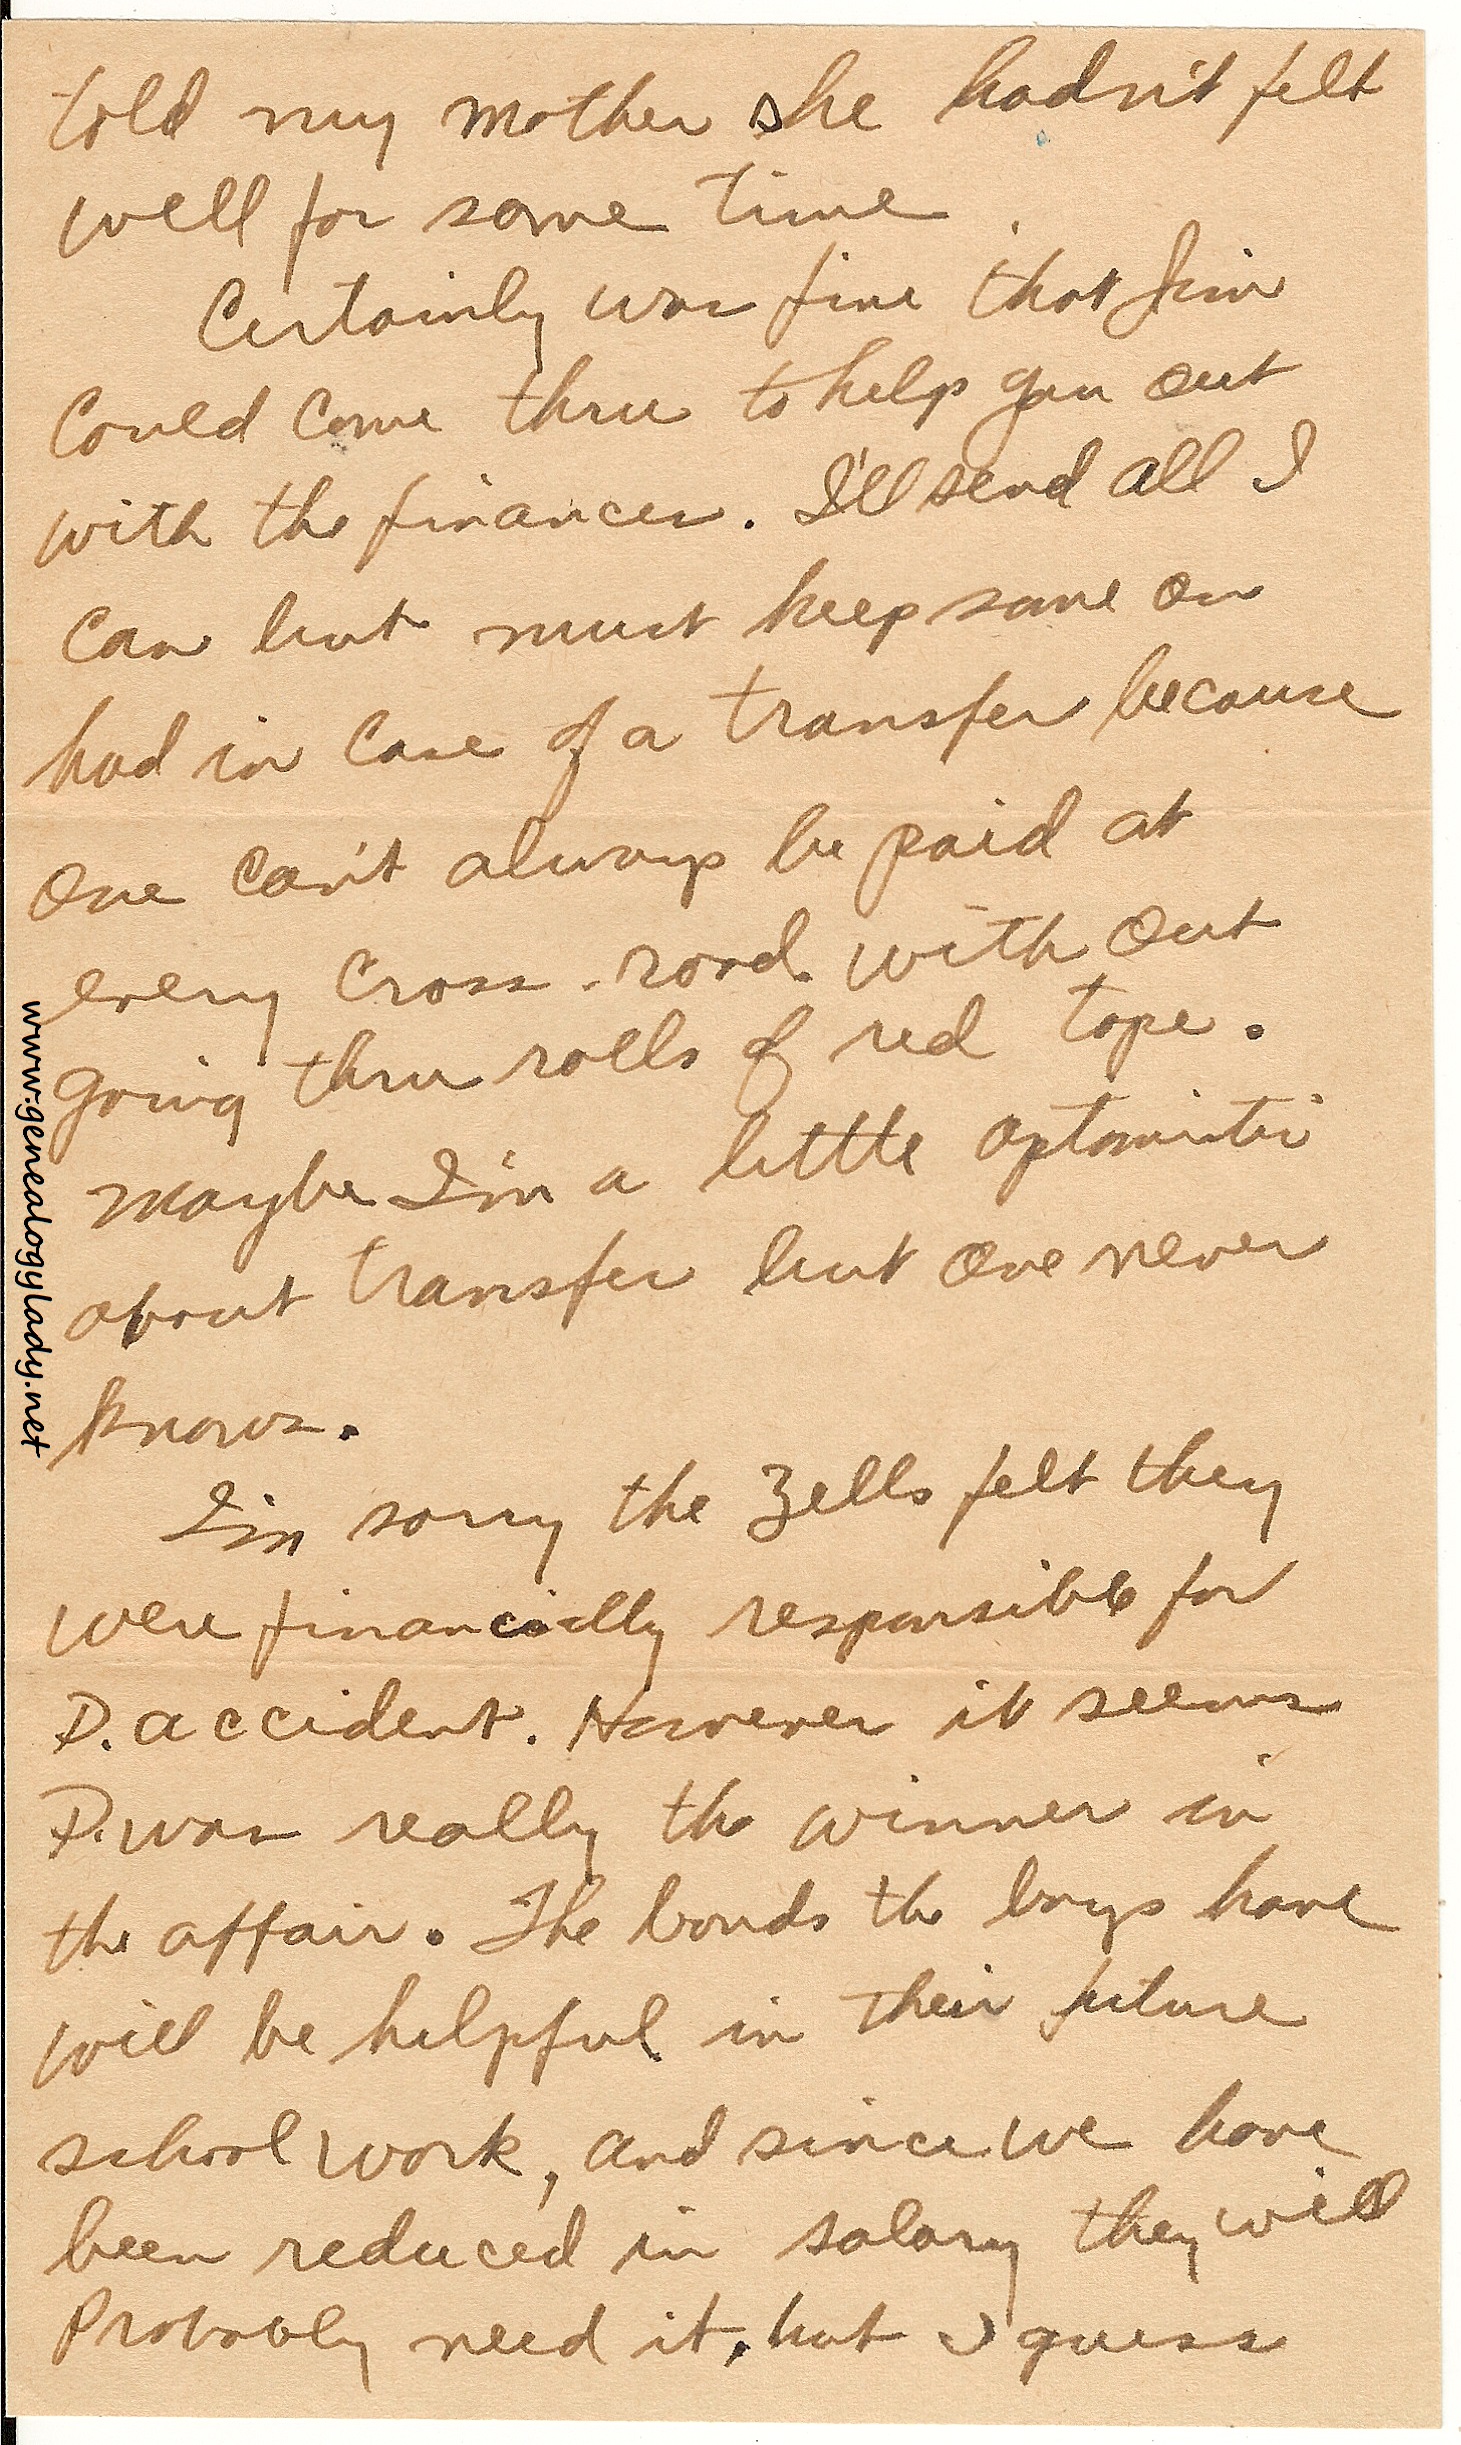 told my mother she hadn't felt
well for some time.
Certainly was fine that Jim
could come thru to help you out
with the finances. I'll send all I
can but must keep some on
had in case of a transfer because
one can't always be paid at
every cross-road with out
going thru rolls of red tape.
maybe I'm a little optomistic
about transfer but one never
knows.
I'm sorry the Zells felt they
were financially responsible for
D. accident. However it seems
D. was really the winner in
the affair. The bonds the boys have
will be helpful in their future
school work, and since we have
been reduced in salary they will
Probably need it, but I guess
www.genealogylady.net